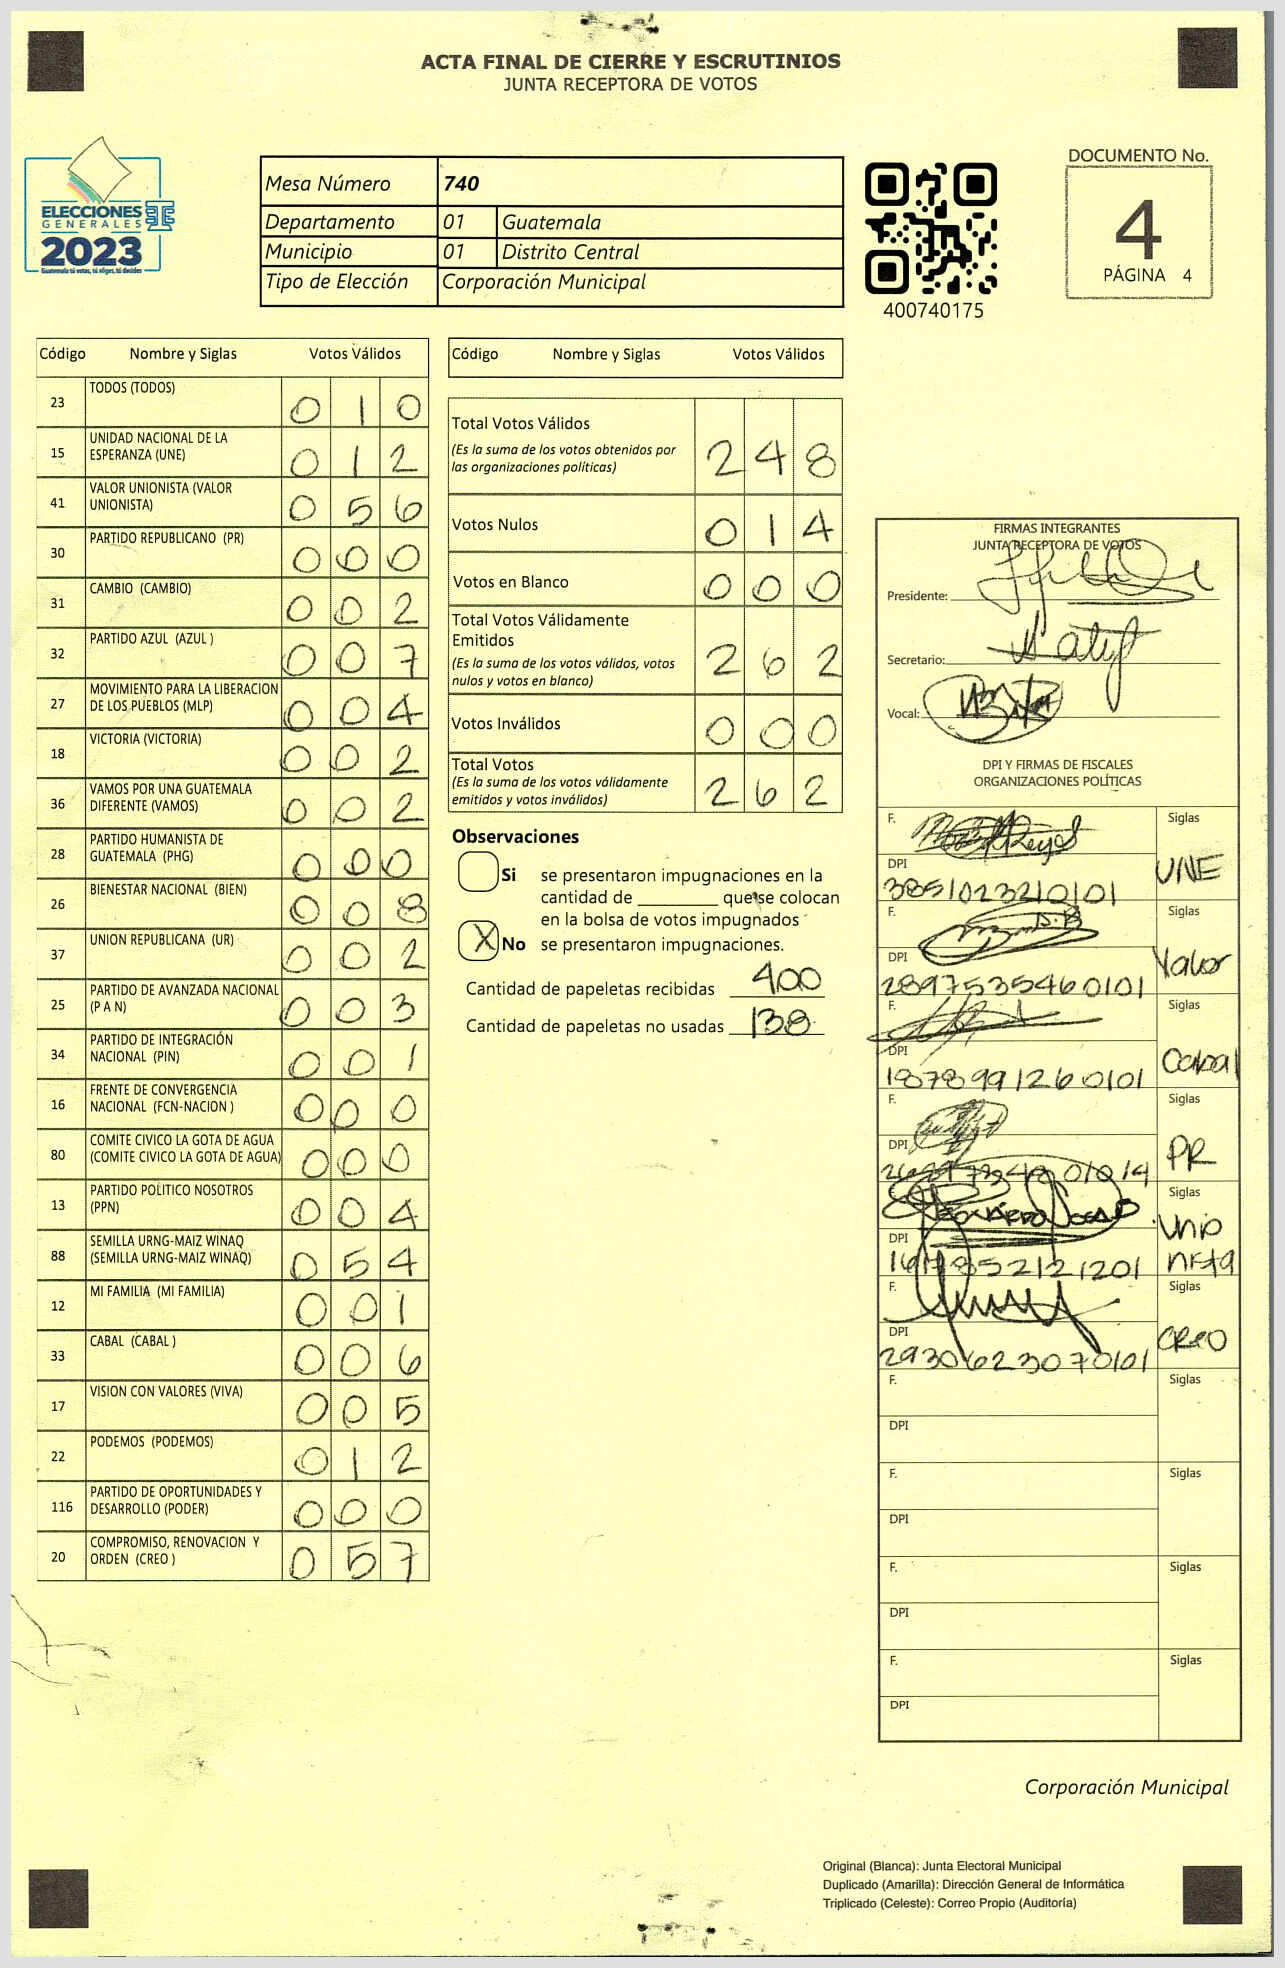 ACTA FINAL DE CIERRE Y ESCRUTINIOS
JUNTA RECEPTORA DE VOTOS
ELECCIONES
GENERALES
2023
Guatemala tú votas, tú eliges, tú decides
Mesa Número 740
Departamento 01 Guatemala
Municipio 01 Distrito Central
Tipo de Elección Corporación Municipal
400740175
DOCUMENTO No.
4
PÁGINA 4
Código Nombre y Siglas Votos Válidos
23 TODOS (TODOS) 0 1 0
15 UNIDAD NACIONAL DE LA
ESPERANZA (UNE) 0 1 2
41 VALOR UNIONISTA (VALOR
UNIONISTA) 0 5 6
30 PARTIDO REPUBLICANO (PR) 0 0 0
31 CAMBIO (CAMBIO) 0 0 2
32 PARTIDO AZUL (AZUL ) 0 0 7
27 MOVIMIENTO PARA LA LIBERACION
DE LOS PUEBLOS (MLP) 0 0 4
18 VICTORIA (VICTORIA) 0 0 2
36 VAMOS POR UNA GUATEMALA
DIFERENTE (VAMOS) 0 0 2
28 PARTIDO HUMANISTA DE
GUATEMALA (PHG) 0 0 0
26 BIENESTAR NACIONAL (BIEN) 0 0 8
37 UNION REPUBLICANA (UR) 0 0 2
25 PARTIDO DE AVANZADA NACIONAL
(P A N) 0 0 3
34 PARTIDO DE INTEGRACIÓN
NACIONAL (PIN) 0 0 1
16 FRENTE DE CONVERGENCIA
NACIONAL (FCN-NACION ) 0 0 0
80 COMITE CIVICO LA GOTA DE AGUA
(COMITE CIVICO LA GOTA DE AGUA) 0 0 0
13 PARTIDO POLITICO NOSOTROS
(PPN) 0 0 4
88 SEMILLA URNG-MAIZ WINAQ
(SEMILLA URNG-MAIZ WINAQ) 0 5 4
12 MI FAMILIA (MI FAMILIA) 0 0 1
33 CABAL (CABAL ) 0 0 6
17 VISION CON VALORES (VIVA) 0 0 5
22 PODEMOS (PODEMOS) 0 1 2
116 PARTIDO DE OPORTUNIDADES Y
DESARROLLO (PODER) 0 0 0
20 COMPROMISO, RENOVACION Y
ORDEN (CREO ) 0 5 7
Código Nombre y Siglas Votos Válidos
Total Votos Válidos
(Es la suma de los votos obtenidos por
las organizaciones políticas) 2 4 8
Votos Nulos 0 1 4
Votos en Blanco 0 0 0
Total Votos Válidamente
Emitidos
(Es la suma de los votos válidos, votos
nulos y votos en blanco) 2 6 2
Votos Inválidos 0 0 0
Total Votos
(Es la suma de los votos válidamente
emitidos y votos inválidos) 2 6 2
Observaciones
Si se presentaron impugnaciones en la
cantidad de ________ que se colocan
en la bolsa de votos impugnados
X No se presentaron impugnaciones.
Cantidad de papeletas recibidas 400
Cantidad de papeletas no usadas 138
FIRMAS INTEGRANTES
JUNTA RECEPTORA DE VOTOS
Presidente:
Secretario:
Vocal:
DPI Y FIRMAS DE FISCALES
ORGANIZACIONES POLÍTICAS
F. Siglas
DPI UNE
3851023210101
F. Siglas
DPI Valor
2897535460101
F. Siglas
DPI Cabal
1878991260101
F. Siglas
DPI PR
Siglas
DPI Unio
nista
F. Siglas
DPI CREO
2930623070101
F. Siglas
DPI
F. Siglas
DPI
F. Siglas
DPI
F. Siglas
DPI
Corporación Municipal
Original (Blanca): Junta Electoral Municipal
Duplicado (Amarilla): Dirección General de Informática
Triplicado (Celeste): Correo Propio (Auditoría)